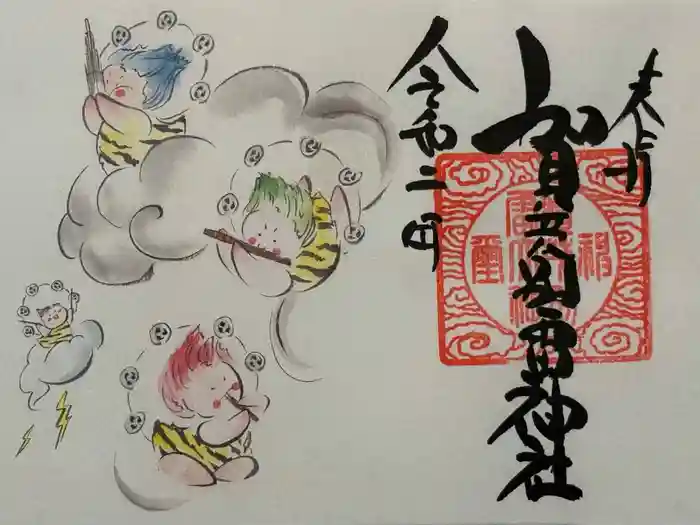 奉拝
賀茂別雷神社
令和二年